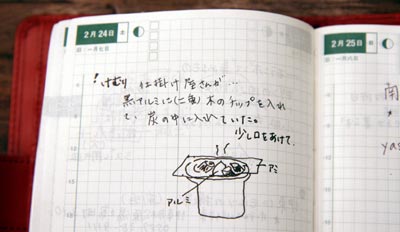 2月24日
旧/一月七
! けむり 仕掛け屋さんが…
黒アルミに(二重) 木のチップを入れ
て、炭の中に入れていた。
少し口をあけて。
アミ
アルミ
2月25日
旧/一月八
南
yas